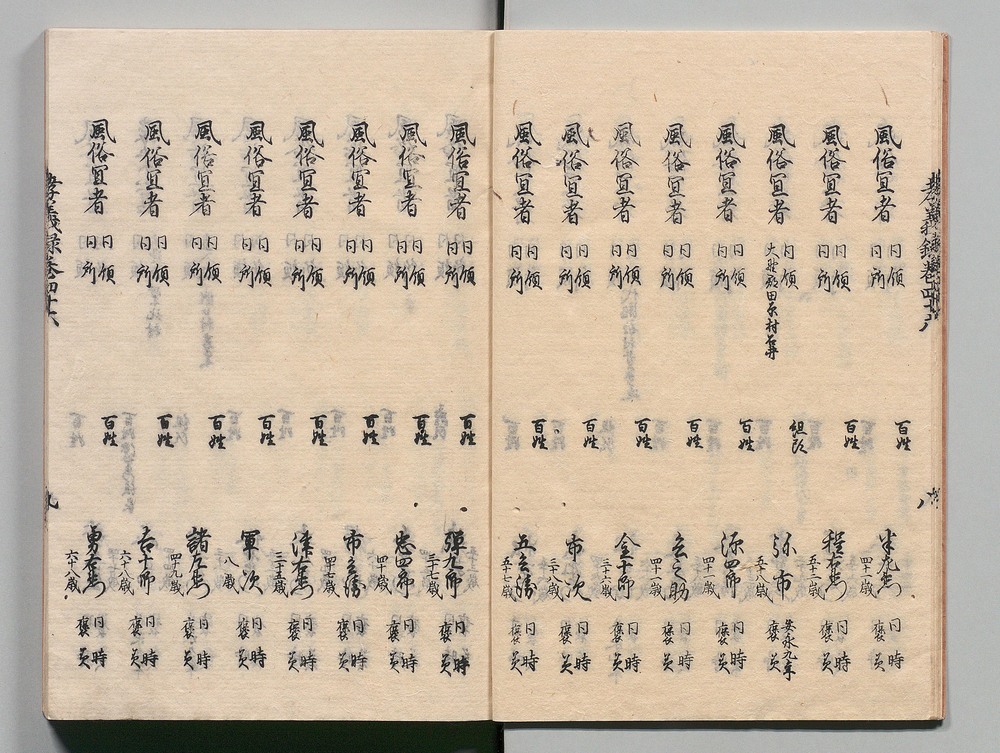 孝義録巻四十六 八
風俗宜者 同領 同所 百姓 半左衛門 四十一歳 同時 褒美
風俗宜者 同領 同所 百姓 程右衛門 五十二歳 同時 褒美
風俗宜者 同領 田原村 組頭 弥市 五十八歳 安永九年 褒美
風俗宜者 同領 同所 百姓 源四郎 四十一歳 同時 褒美
風俗宜者 同領 同所 百姓 之助 四十二歳 同時 褒美
風俗宜者 同領 同所 百姓 金十郎 三十六歳 同時 褒美
風俗宜者 同領 同所 百姓 市次 三十八歳 同時 褒美
風俗宜者 同領 同所 百姓 五兵衛 五十七歳 同時 褒美
風俗宜者 同領 同所 百姓 弾九郎 三十七歳 同時 褒美
風俗宜者 同領 同所 百姓 忠四郎 四十歳 同時 褒美
風俗宜者 同領 同所 百姓 市兵衛 四十七歳 同時 褒美
風俗宜者 同領 同所 百姓 津右衛門 三十五歳 同時 褒美
風俗宜者 同領 同所 百姓 軍次 八歳 同時 褒美
風俗宜者 同領 同所 百姓 諸左衛門 四十九歳 同時 褒美
風俗宜者 同領 同所 百姓 吉十郎 六十歳 同時 褒美
風俗宜者 同領 同所 百姓 勇右衛門 六十八歳 同時 褒美
孝義録巻四十六 九